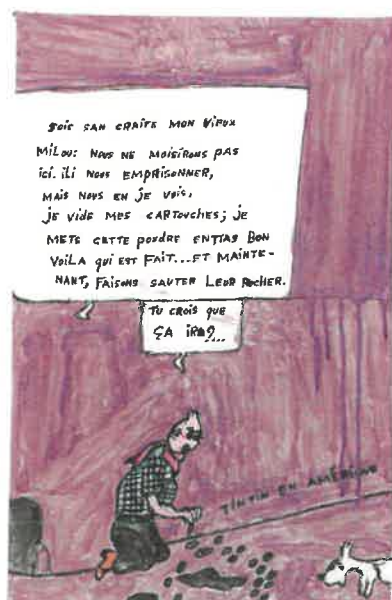 SOIS SAN CRAITE MON VIEUX
MILOU: NOUS NE MOISIRONS PAS
ICI. ILI NOUS EMPRISONNER,
MAIS NOUS EN JE VOIS,
JE VIDE MES CARTOUCHES; JE
METS CETTE POUDRE ENTTAS BON
VOILA QUI EST FAIT...ET MAINTE-
NANT, FAISONS SAUTER LEUR ROCHER.
TU CROIS QUE
ÇA IRA?...
TINTIN EN AMÉRIQUE